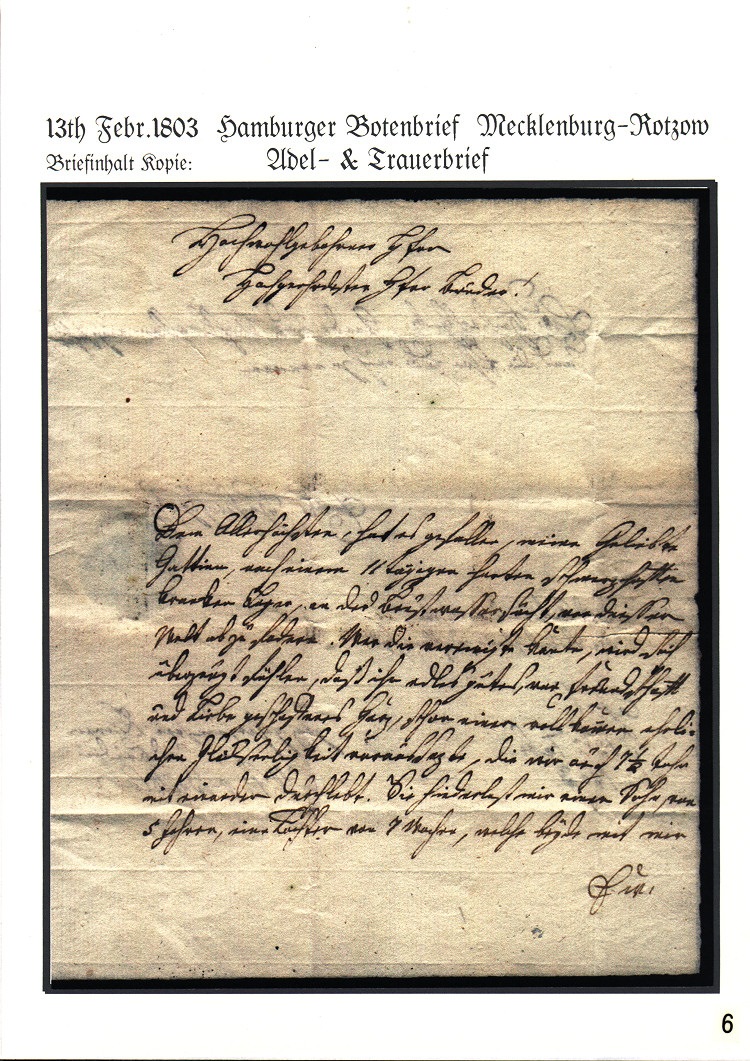 13th Febr.1803 Hamburger Botenbrief Mecklenburg-Rotzow
Briefinhalt Kopie: Adel- & Trauerbrief
Hochwohlgebohrner Herr
Herr Bruder!
Dem Allerhöchsten, hat es gefallen, meine Geliebte
Gattinn, nach einem 11 tägigen harten schmerzhaften
Kranken Lager, an der Brustwassersucht von dieser
Welt ab zu fodern. Wer die verewigte kante, wird sich
überzeugt fühlen, daß ihr edles gutes, vor Freundschaft
und Liebe geschafnes Herz, einer vollkomen eheli-
chen Glükseligkeit, die wir auch 7½ Jahr
mit einander durchlebt. Sie hinterlest mir einen Sohn, von
5 Jahren, eine Tochter von 7 Wochen, welche beyde mit mir
Ew.
6